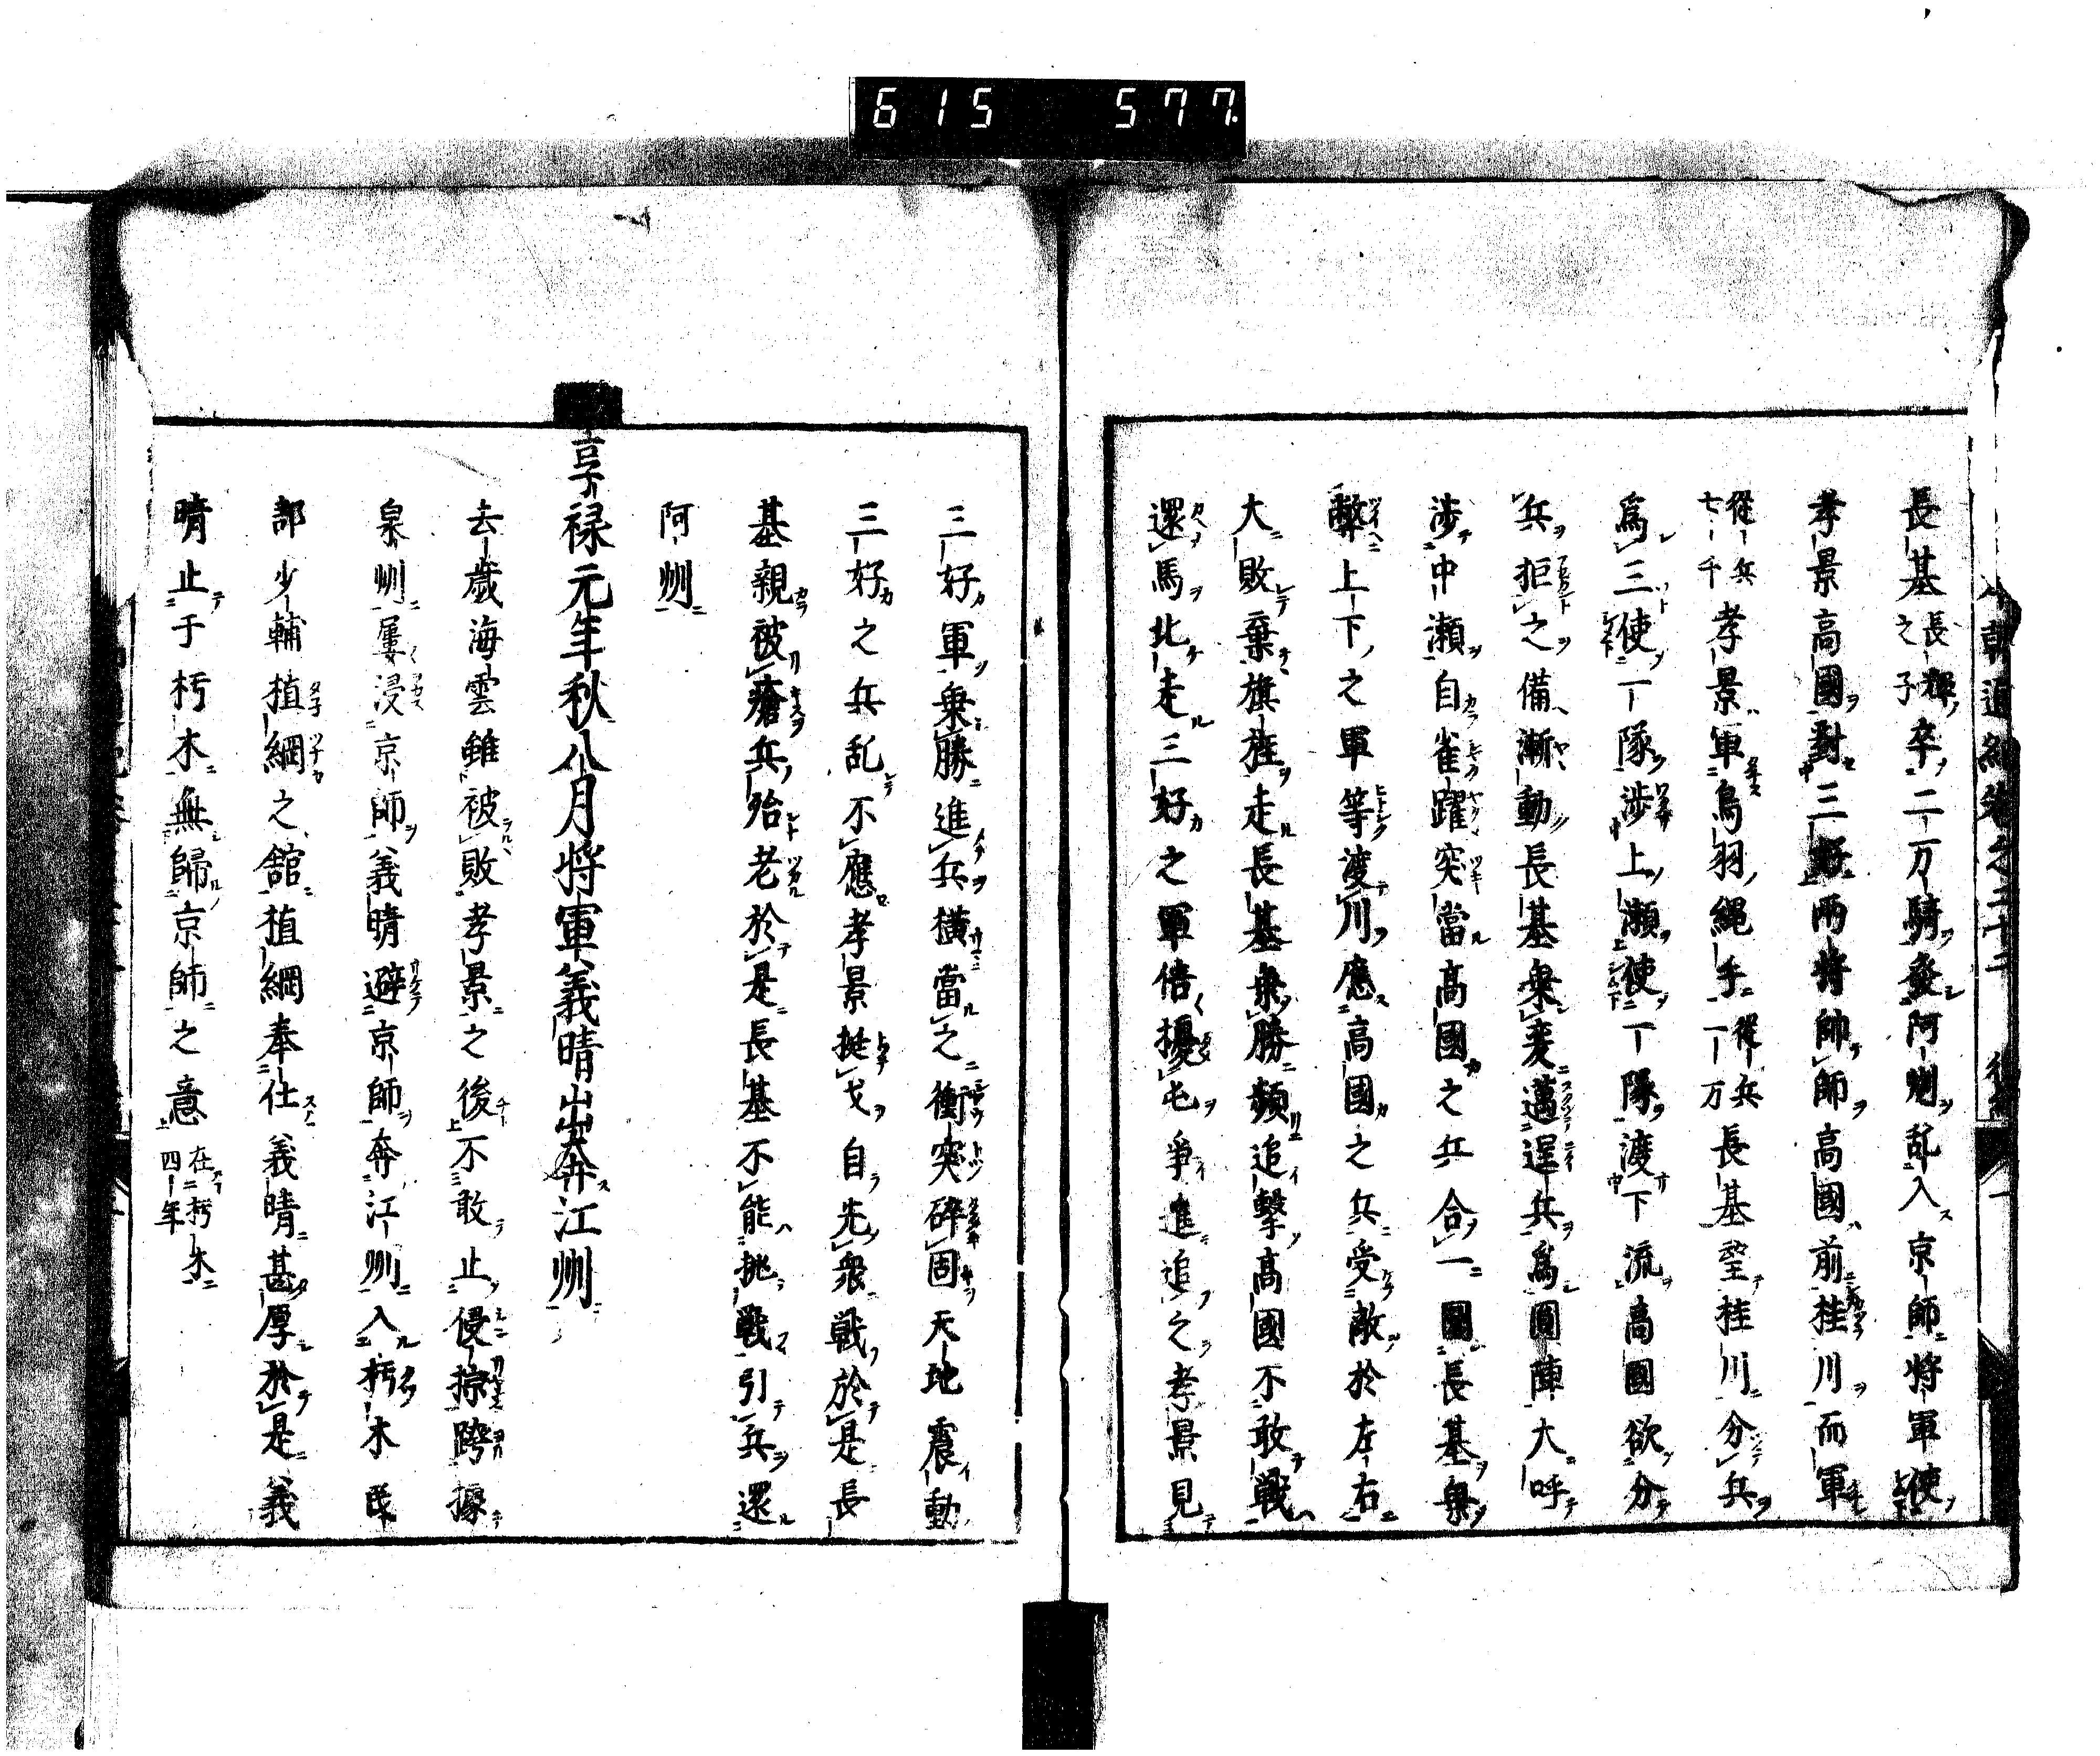 615 577.
長基長輝之子卒二万騎發阿州乱入京師将軍使
孝景高國對三好兩将帥師高國前桂川而軍
從兵七千孝景軍鳥羽縄手從兵一万長基望桂川分兵
爲三使一隊渉上瀬使一隊渡下流高國欲分
兵拒之備漸動長基乗変邁逞兵爲圓陣大呼
渉中瀬自雀躍突當高國之兵合一圍長基乗
弊上下之軍等渡川應高國之兵受敵於左右
大敗棄旗旌走長基乗勝頻追擊高國不敢戰
還馬北走三好之軍倍擾屯爭進追之孝景見
三好軍乗勝進兵横當之衝突碎固天地震動
三好之兵乱不應孝景挺戈自先衆戰於是長
基親被瘡兵殆老於是長基不能挑戰引兵還
阿州
享禄元年秋八月将軍義晴出奔江州
去歲海雲雖被敗孝景之後不敢止侵掠跨據
泉州屢浸京師義晴避京師奔江州入朽木民
部少輔植綱之舘植綱奉仕義晴甚厚於是義
晴止于朽木無歸京師之意在朽木四年